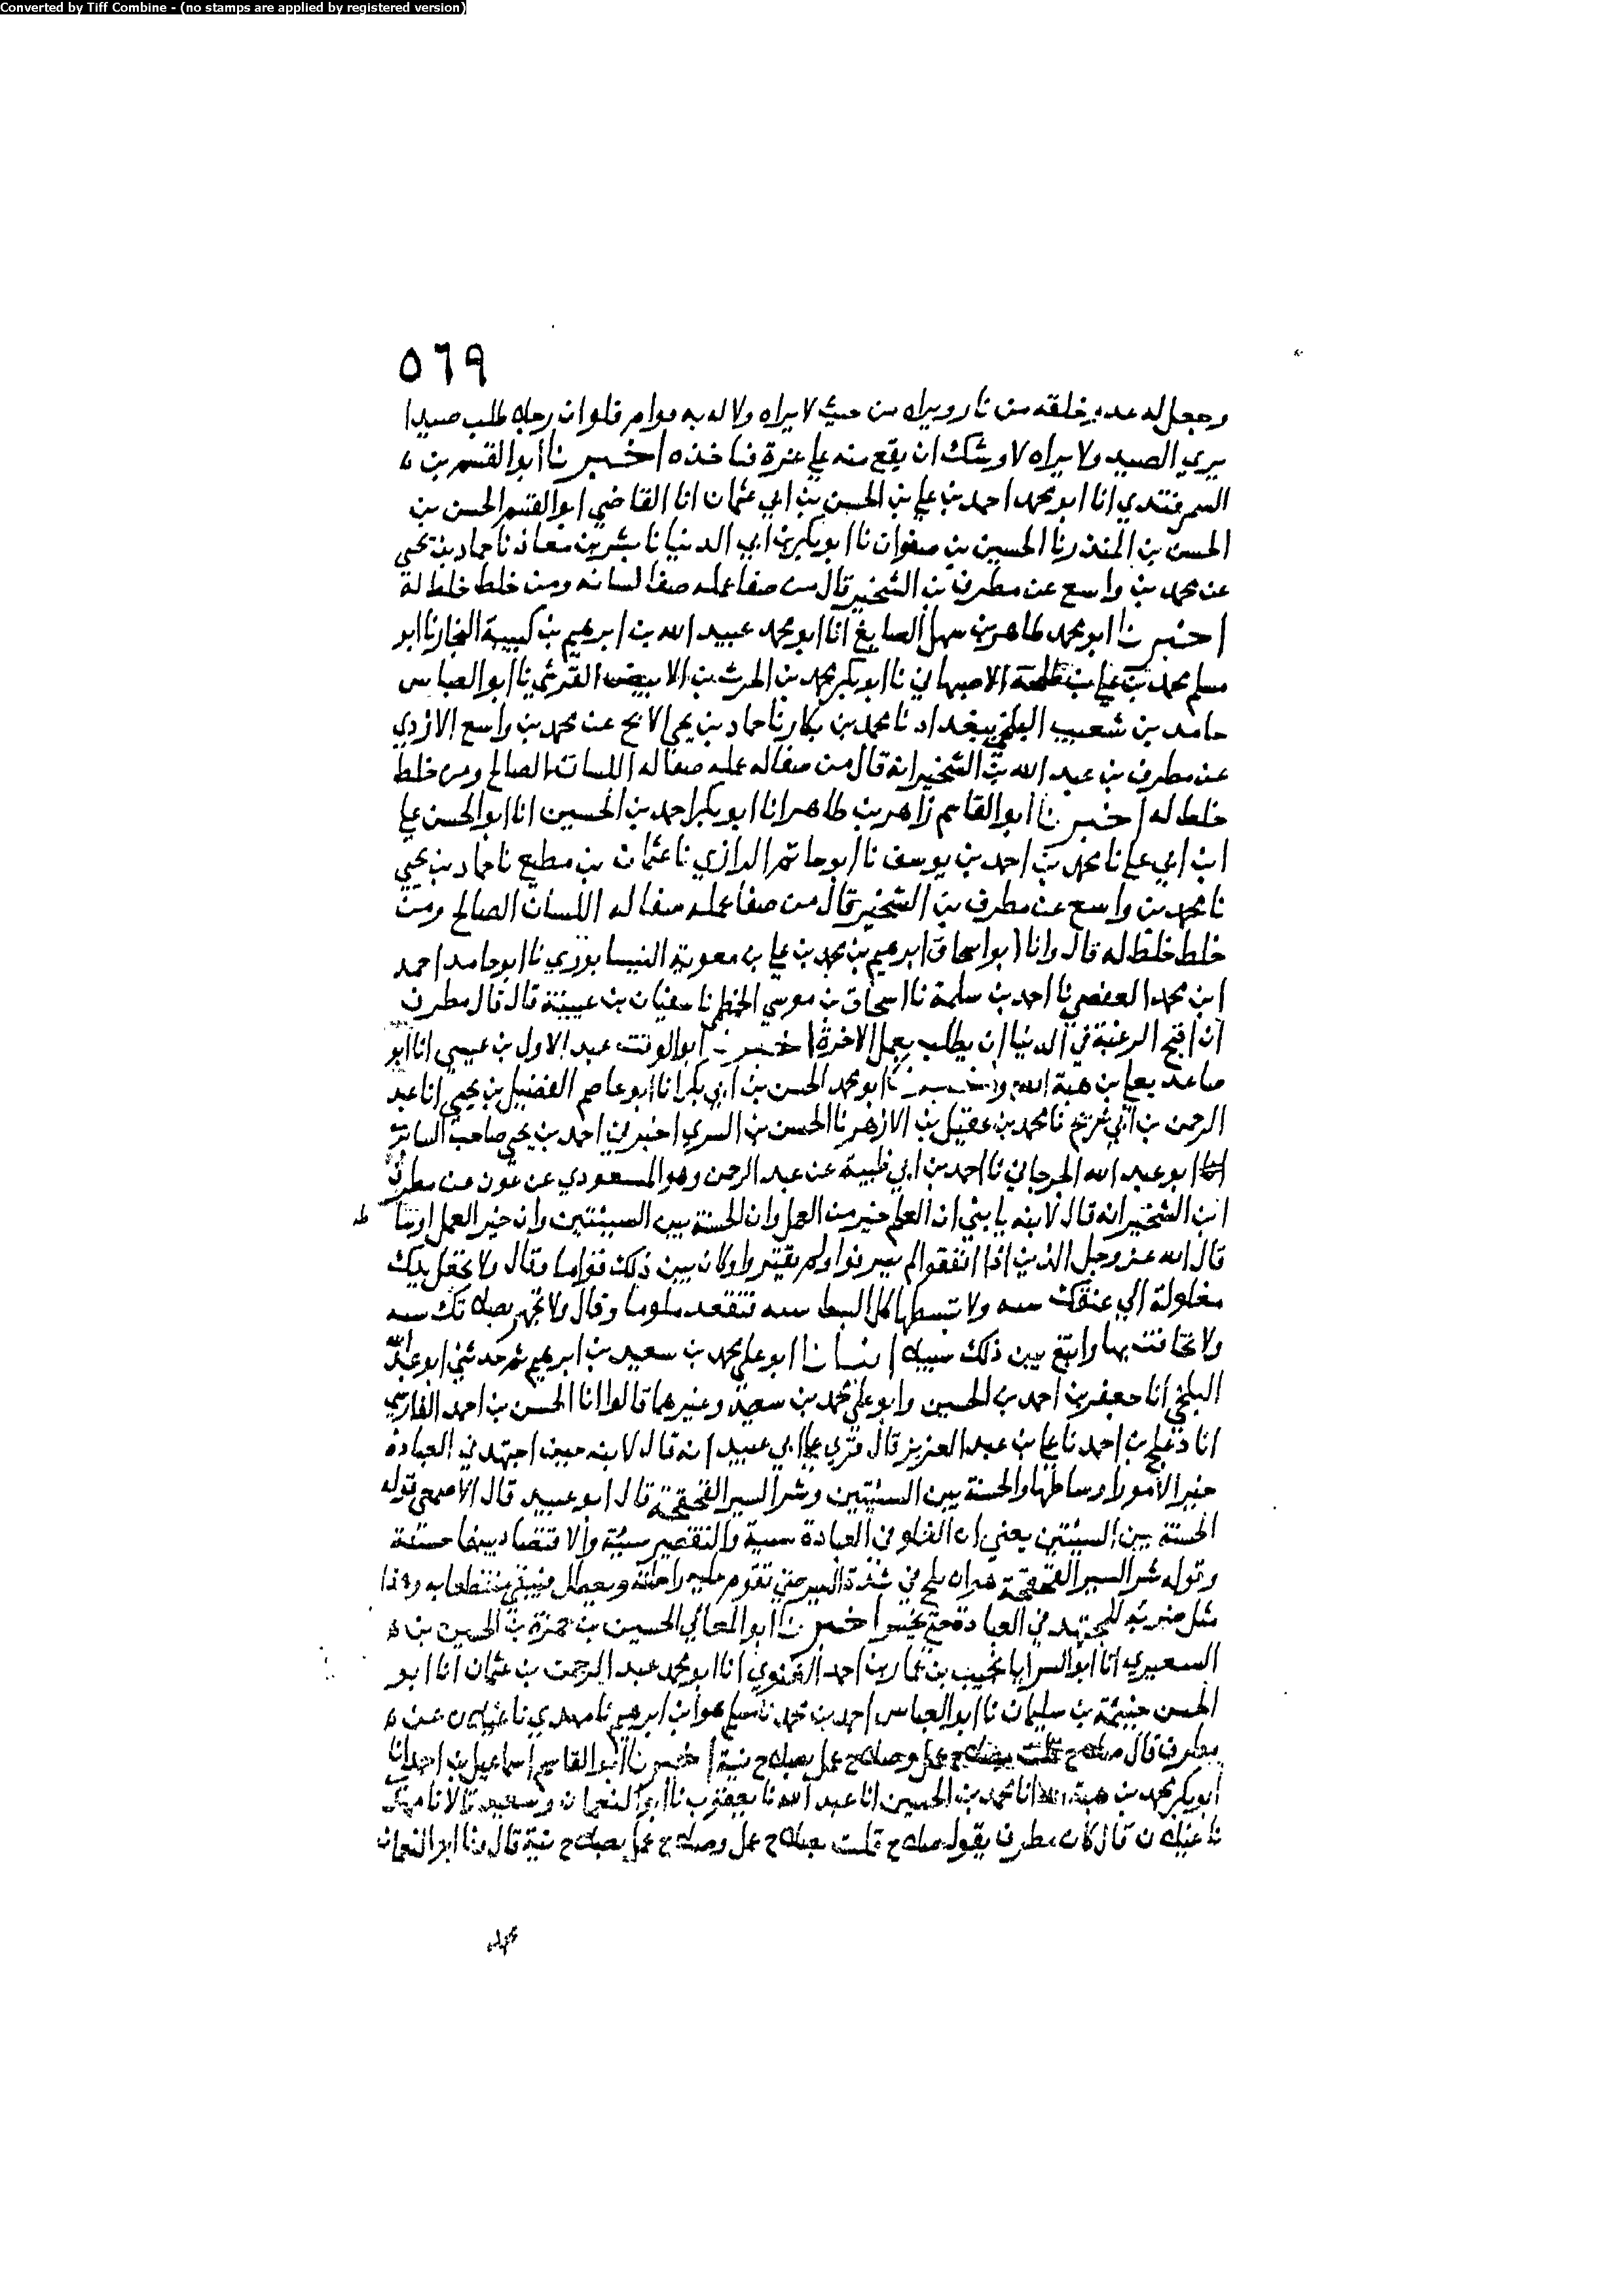 Converted by Tiff Combine - (no stamps are applied by registered version)
٥٦٩
وجعل له عدو خلقه من نار ويراه من حيث لا يراه ولا له به قوام فلو ان رجلا طلب صيدا
يري الصيد ولا يراه لاوشك ان يقع منه علي غرة فياخذه اخبرنا ابو القسم بن
السمرقندي انا ابو محمد احمد بن علي بن الحسن بن ابي عثمان انا القاضي ابو القسم الحسن بن
الحسن بن المنذر نا الحسين بن صفوان نا ابو بكر بن ابي الدنيا نا بشر بن معاذ نا حماد بن يحيي
عن محمد بن واسع عن مطرف بن الشخير قال من صفا عمله صفا لسانه ومن خلط خلط له
اخبرنا ابو محمد طاهر بن سهل الصايغ انا ابو محمد عبيد الله بن ابرهيم بن كبيبة النجار نا ابو
مسلم محمد بن علي بن طلحة الاصبهاني نا ابو بكر محمد بن الحرث بن الابيض القرشي نا ابو العباس
حامد بن شعيب البلخي ببغداد نا محمد بن بكار نا حماد بن يحي الابح عن محمد بن واسع الازدي
عن مطرف بن عبد الله بن الشخير انه قال من صفا له عمله صفا له اللسان الصالح ومن خلط
خلط له اخبرنا ابو القاسم زاهر بن طاهر انا ابو بكر احمد بن الحسين انا ابو الحسن علي
ابن ابي علي نا محمد بن احمد بن يوسف نا ابو حاتم الرازي نا عثمان بن مطيع نا حماد بن يحيي
نا محمد بن واسع عن مطرف بن الشخير قال من صفا عمله صفا له اللسان الصالح ومن
خلط خلط له قال وانا ابو اسحاق ابرهيم بن محمد بن علي بن معوية النيسابوري نا ابو حامد احمد
ابن محمد العفصي نا احمد بن سلمة نا اسحاق بن موسي الخطمي نا سفيان بن عيينة قال قال مطرف
ان اقبح الرغبة في الدنيا ان يطلب بعمل الاخرة اخبرنا ابو الوقت عبد الاول بن عيسي انا ابو
صاعد يعلي بن هبة الله واخبرنا ابو محمد الحسن بن ابي بكر انا ابو عاصم الفضيل بن يحيي انا عبد
الرحمن بن ابي شريح نا محمد بن عقيل بن الازهر نا الحسن بن السري اخبرني احمد بن يحي صاحب
انا ابو عبد الله الجرجاني نا احمد بن ابي ظبية عن عبد الرحمن وهو المسعودي عن عون عن مطرف
ابن الشخير انه قال لابنه يا بني ان العلم خير من العمل وان الحسنة بين السيئتين وان خير العمل اوسا
طه
قال الله عز وجل الذين اذا انفقوا لم يسرفوا ولم يقتروا وكان بين ذلك قواما وقال ولا تجعل يدك
مغلولة الي عنقك سه ولا تبسطها كل البسط سه فتقعد ملوما وقال ولا تجهر بصلاتك سه
ولا تخافت بها وابتغ بين ذلك سبيلا انبانا ابو علي محمد بن سعيد بن ابرهيم ثم حدثني ابو عبد الله
البلخي انا جعفر بن احمد بن الحسين وابو علي محمد بن سعيد وغيرهما قالوا انا الحسن بن احمد الفارسي
انا دعلج بن احمد نا علي بن عبد العزيز قال قري علي ابي عبيد انه قال لابنه حين اجتهد في العبادة
خير الامور اوساطها والحسنة بين السيئتين وشر السير الحقحقة قال ابو عبيد قال الاصمعي قوله
الحسنة بين السيئتين يعني ان الغلو في العبادة سيية والتقصير سيئة والاقتصاد بينهما حسنة
وقوله شر السير الحقحقة هو ان يلح في شدة السير حتي تقوم عليه راحلته ويعطل فيبقي منقطعا به وهذا
مثل ضربه للمجتهد في العبادة حتي يحسر اخبرنا ابو المعالي الحسين بن حمزة بن الحسين بن
السعيري انا ابو السرايا نجيب بن عمار بن احمد الغنوي انا ابو محمد عبد الرحمن بن عثمان انا ابو
الحسن خيثمة بن سليمان نا ابو العباس احمد بن محمد نا مسلم هو ابن ابرهيم نا مهدي نا غيلان عن
مطرف قال صلاح قلب بصلاح عمل وصلاح عمل بصلاح نية اخبرنا ابو القاسم اسماعيل بن احمد انا
ابو بكر محمد بن هبة الله انا محمد بن الحسين انا عبد الله نا يعقوب نا ابو النعمان وسعيد قالا نا مهدي
نا غيلان قال كان مطرف يقول صلاح قلب بصلاح عمل وصلاح عمل بصلاح نية قال ونا ابو النعمان